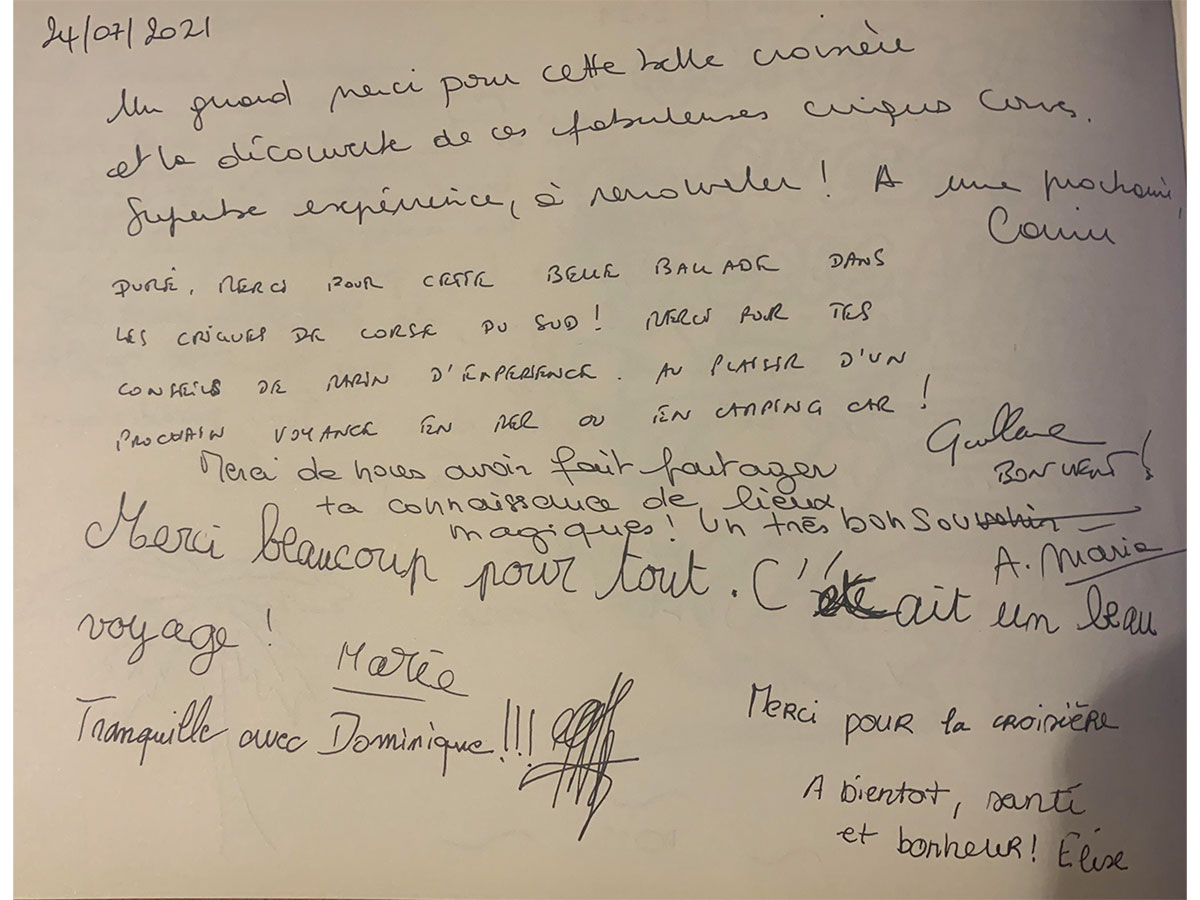 24/07/2021
Un grand merci pour cette belle croisière
et la découverte de ces fabuleuses criques Corses.
Superbe expérience, à renouveler ! A une prochaine,
PURÉ, MERCI POUR CETTE BELLE BALLADE DANS
LES CRIQUES DE CORSE DU SUD ! MERCI POUR TES
CONSEILS DE MARIN D'EXPERIENCE. AU PLAISIR D'UN
PROCHAIN VOYANGE EN MER OU EN CAMPING CAR !
Guillaume
BON VENT !
Merci de nous avoir fait partager
ta connaissance de lieux
magiques ! Un très bon souvenir
A. Marie
Merci beaucoup pour tout. C'était un beau
voyage !
Marie
Tranquille avec Dominique !!!
Merci pour la croisière
A bientot, santé
et bonheur ! Elise